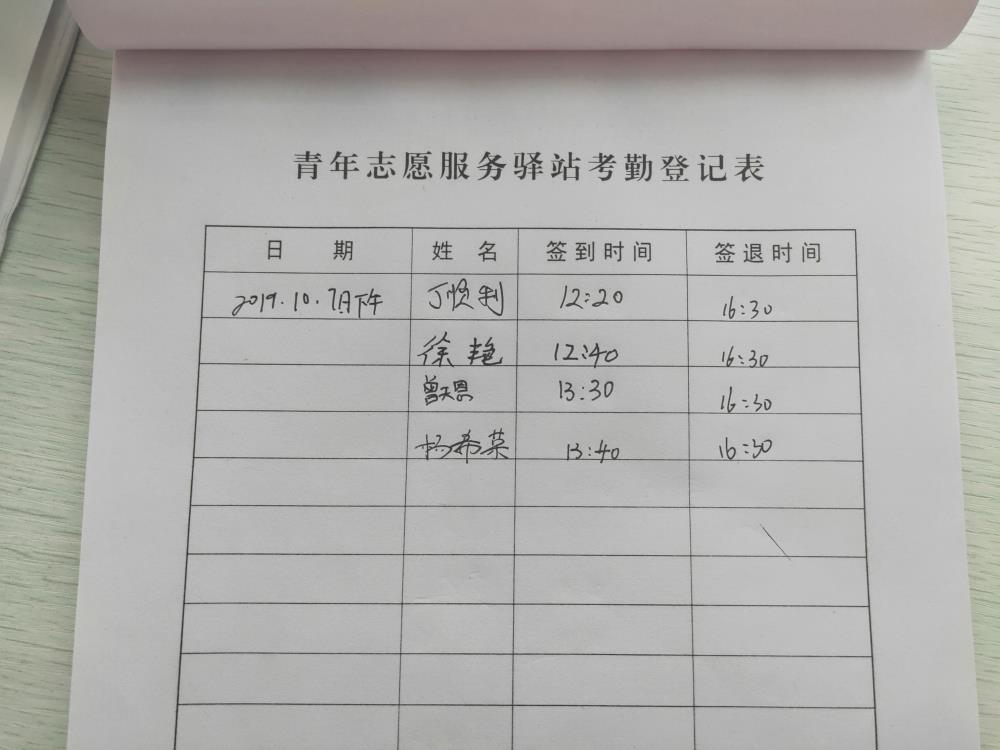 青年志愿服务驿站考勤登记表
日期 姓名 签到时间 签退时间
2019.10.7月下午 丁顺利 12:20 16:30
徐艳 12:40 16:30
曾天恩 13:30 16:30
杨希菜 13:40 16:30